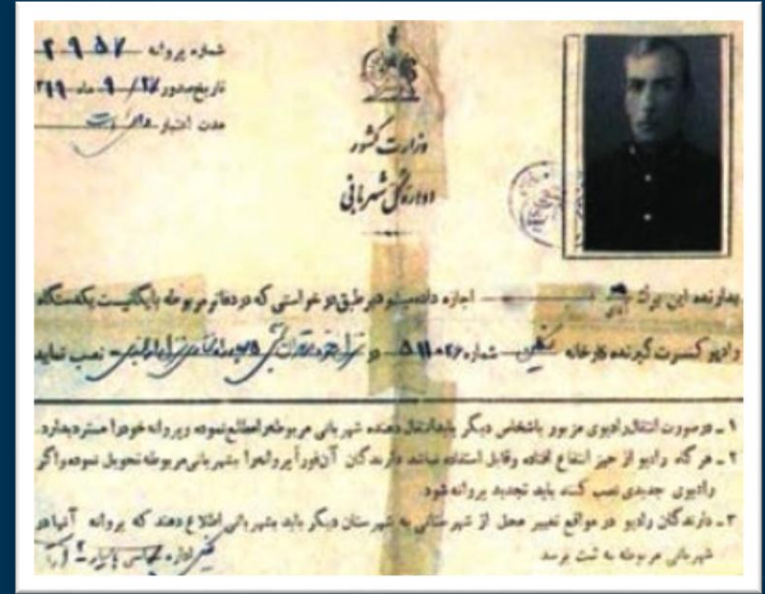 شماره پروانه ۲۹۵۷
تاریخ صدور ۹ ماه
مدت اعتبار
وزارت کشور
اداره کل شهربانی
بدارنده این برگ آقای اجازه داده میشود بر طبق درخواستی که در دفاتر مربوطه بایگانیست یکدستگاه
رادیو کنسرت گیرنده کارخانه شماره در نصب نماید
۱ - در صورت انتقال رادیوی مزبور باشخاص دیگر باید انتقال دهنده شهربانی مربوطه را مطلع نموده و پروانه خود را مسترد بدارد.
۲ - هر گاه رادیو از حیز انتفاع افتاده و قابل استفاده نباشد دارندگان آن فوراً پروانه را بشهربانی مربوطه تحویل نموده و اگر
رادیوی جدیدی نصب کنند باید تجدید پروانه شود.
۳ - دارندگان رادیو در مواقع تغییر محل از شهرستانی به شهرستان دیگر باید بشهربانی اطلاع دهند که پروانه آنها در
شهربانی مربوطه به ثبت برسد